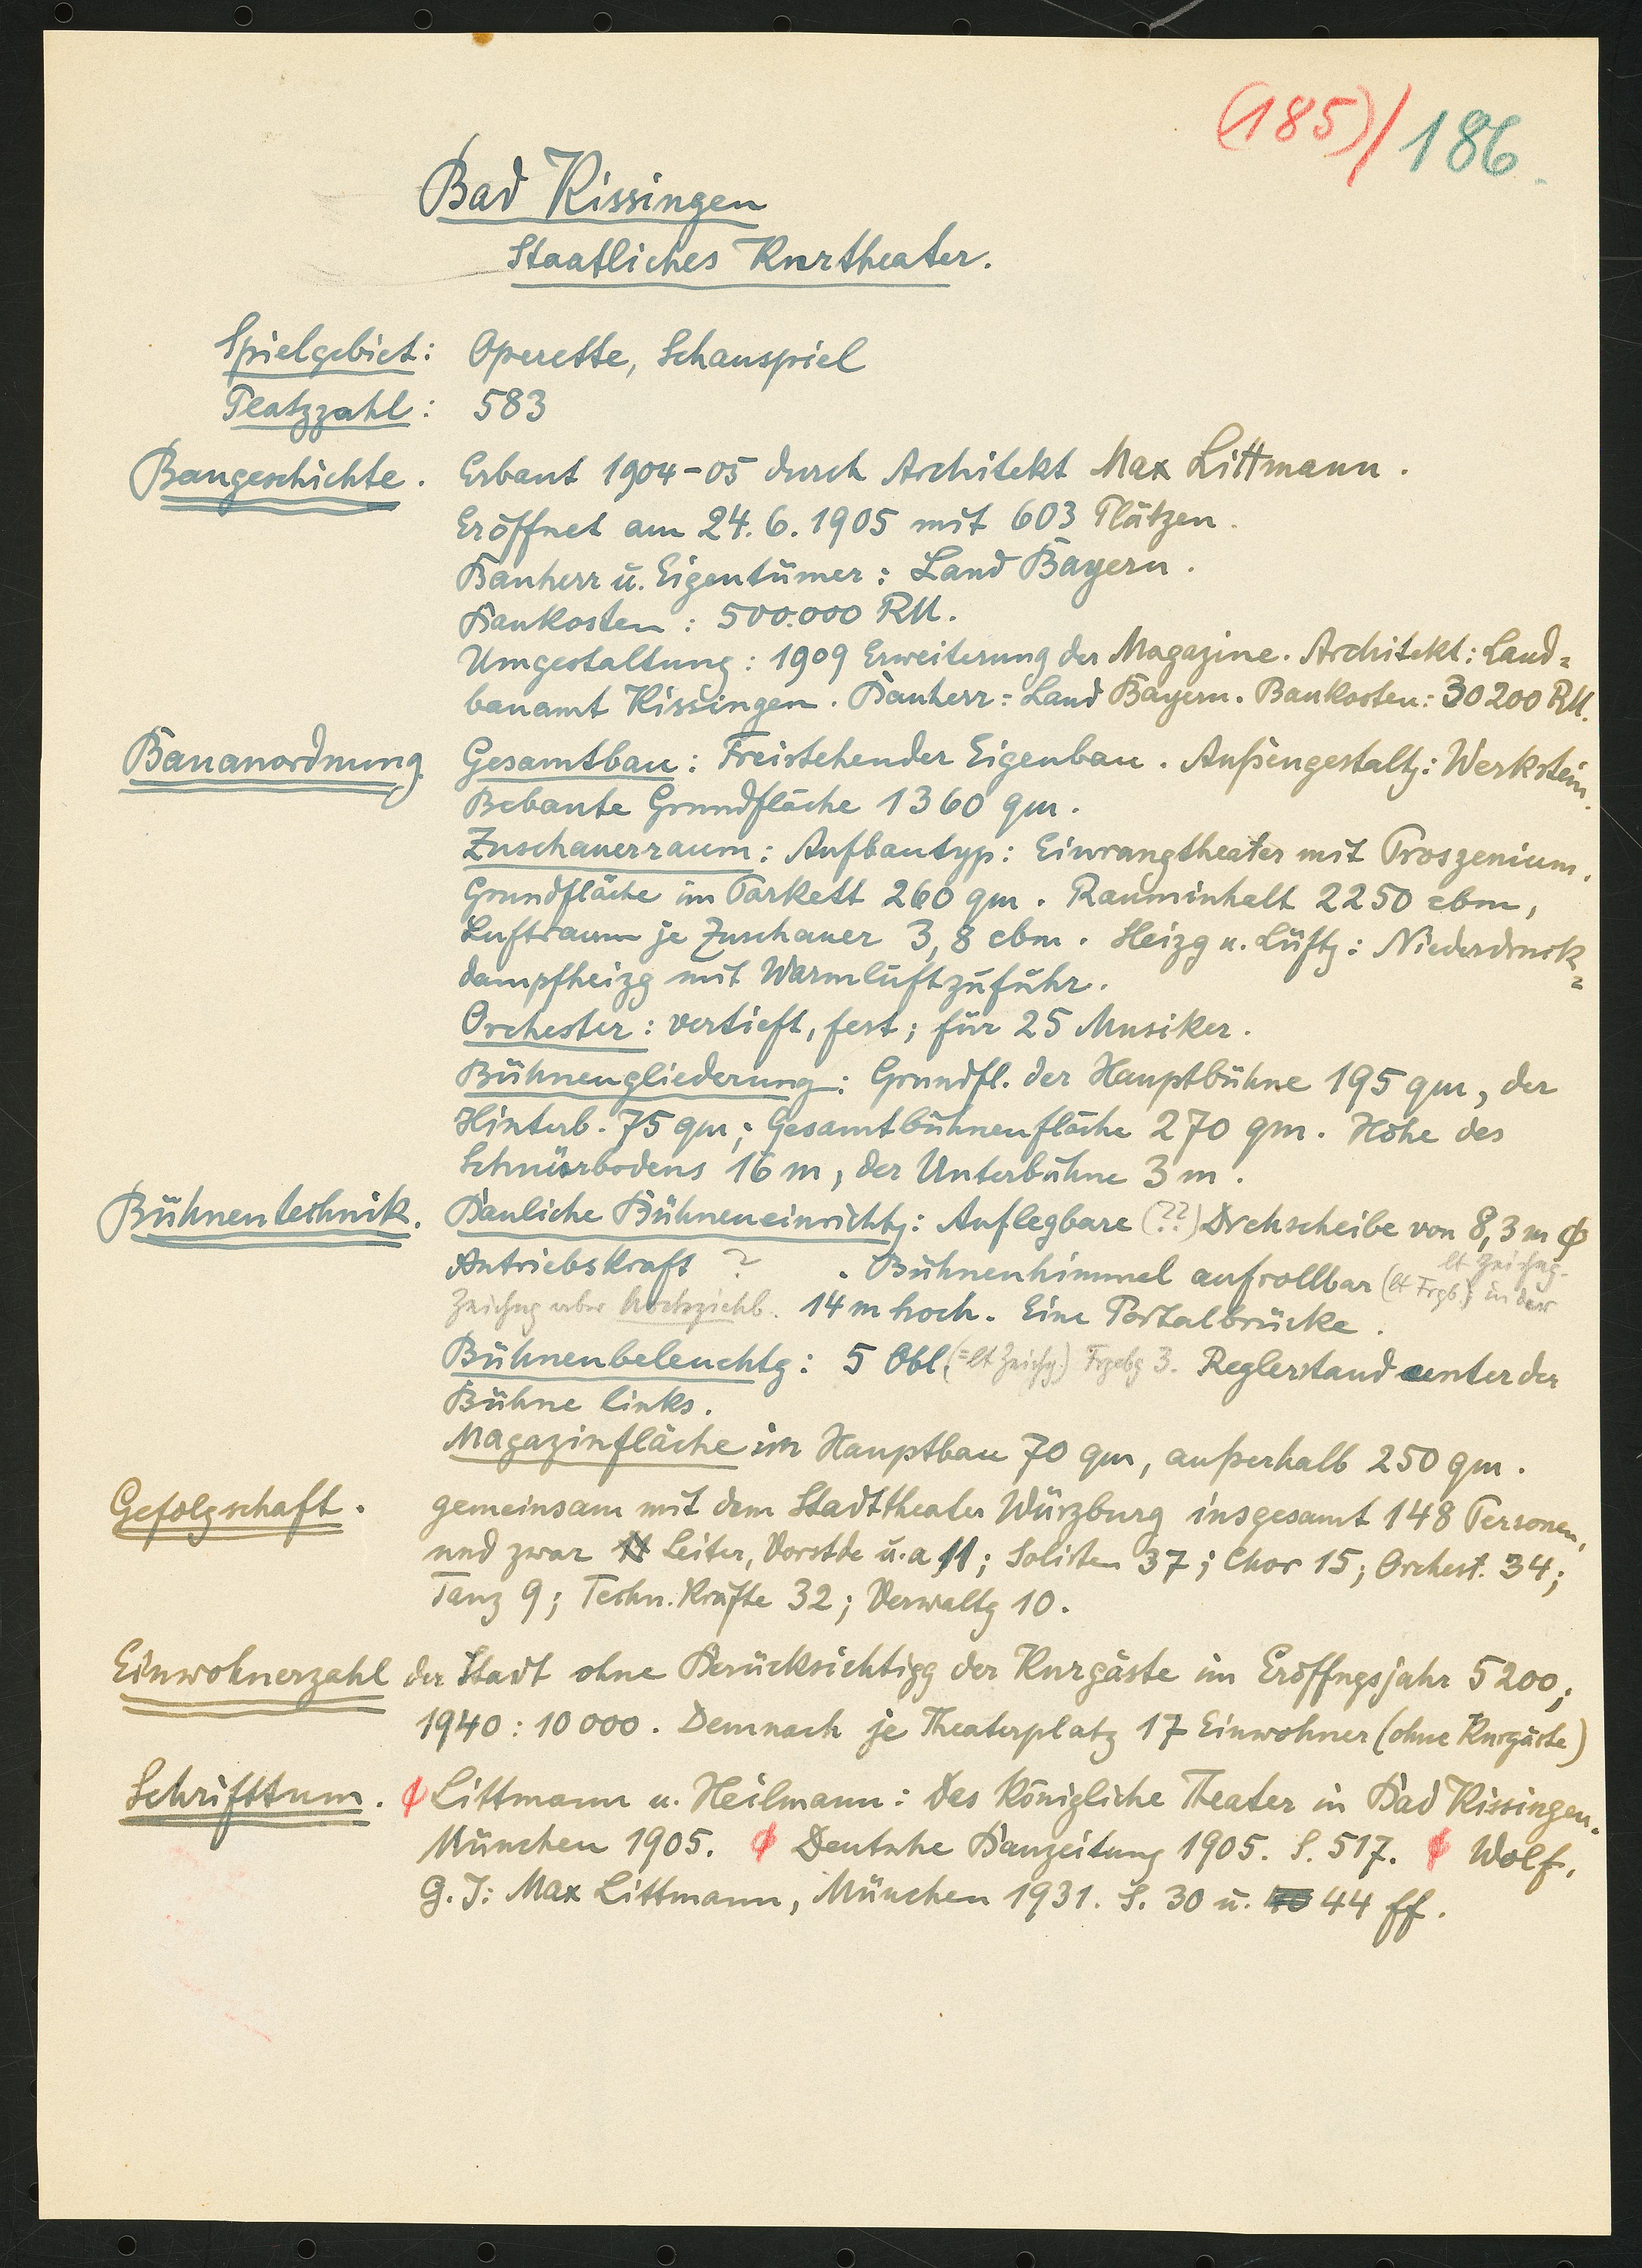 (185)/186.
Bad Kissingen
Staatliches Kurtheater.
Spielgebiet: Operette, Schauspiel
Platzzahl: 583
Baugeschichte. Erbaut 1904-05 durch Architekt Max Littmann.
Eröffnet am 24.6.1905 mit 603 Plätzen.
Bauherr u. Eigentümer: Land Bayern.
Baukosten: 500.000 RM.
Umgestaltung: 1909 Erweiterung der Magazine. Architekt: Land=
bauamt Kissingen. Bauherr: Land Bayern. Baukosten: 30200 RM.
Bauanordnung. Gesamtbau: Freistehender Eigenbau. Außengestaltg: Werkstein.
Bebaute Grundfläche 1360 qm.
Zuschauerraum: Aufbautyp: Einrangtheater mit Proszenium.
Grundfläche im Parkett 260 qm. Rauminhalt 2250 cbm,
Luftraum je Zuschauer 3,8 cbm. Heizg u. Lüftg: Niederdruck=
dampfheizg mit Warmluftzufuhr.
Orchester: vertieft, fest; für 25 Musiker.
Bühnengliederung: Grundfl. der Hauptbühne 195 qm, der
Hinterb. 75 qm; Gesamtbühnenfläche 270 qm. Höhe des
Schnürbodens 16 m, der Unterbühne 3 m.
Bühnentechnik. Bauliche Bühneneinrichtg: Auflegbare (??) Drehscheibe von 8,3 m φ
Antriebskraft ? . Bühnenhimmel aufrollbar (lt Frgb.) in der lt Zeichng.
Zeichng aber hochziehb. 14 m hoch. Eine Portalbrücke.
Bühnenbeleuchtg: 5 Obl. (=lt Zeichg.) Frgebg 3. Reglerstand unter der
Bühne links.
Magazinfläche im Hauptbau 70 qm, außerhalb 250 qm.
Gefolgschaft. gemeinsam mit dem Stadttheater Würzburg insgesamt 148 Personen,
und zwar Leiter, Vorstde u.a 11; Solisten 37; Chor 15; Orchest. 34;
Tanz 9; Techn. Kräfte 32; Verwaltg 10.
Einwohnerzahl der Stadt ohne Berücksichtigg der Kurgäste im Eröffngsjahr 5200;
1940: 10000. Demnach je Theaterplatz 17 Einwohner (ohne Kurgäste)
Schrifttum. φ Littmann u. Heilmann: Das Königliche Theater in Bad Kissingen.
München 1905. φ Deutsche Bauzeitung 1905. S. 517. φ Wolf,
G. J: Max Littmann, München 1931. S. 30 u. 44 ff.